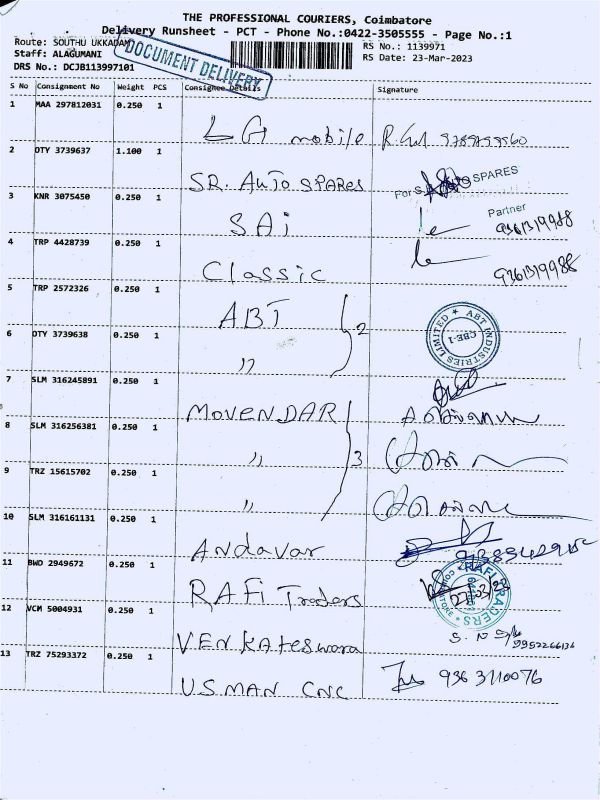 THE PROFESSIONAL COURIERS, Coimbatore
Delivery Runsheet - PCT - Phone No.:0422-3505555 - Page No.:1
Route: SOUTHU UKKADAM
RS No.: 1139971
Staff: ALAGUMANI
RS Date: 23-Mar-2023
DRS No.: DCJB113997101
DOCUMENT DELIVERY
S No Consignment No Weight PCS Consignee Details Signature
1 MAA 297812031 0.250 1
LG mobile
2 DTY 3739637 1.100 1
SR. Auto SPARes
For SPARES
Partner
3 KNR 3075450 0.250 1
SAi
9361319988
4 TRP 4428739 0.250 1
Classic
9361319988
5 TRP 2572326 0.250 1
ABT
2
ABT INDUSTRIES LIMITED
CBE-1
6 DTY 3739638 0.250 1
"
7 SLM 316245891 0.250 1
MOVENDAR
8 SLM 316256381 0.250 1
"
3
9 TRZ 15615702 0.250 1
"
10 SLM 316161131 0.250 1
Andavar
11 BWD 2949672 0.250 1
RAFi Traders
RAFI TRADERS
12 VCM 5004931 0.250 1
VENKAteswara
9952266136
13 TRZ 75293372 0.250 1
USMAN CNC
936 3110076